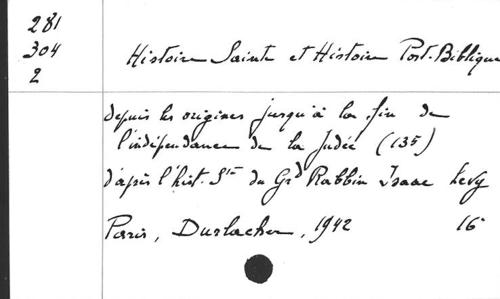 281
304
2
Histoire Sainte et Histoire Post-Biblique
depuis les origines jusqu'à la fin de
l'indépendance de la Judée (135)
d'après l'hist. Ste du Gd Rabbin Isaac Levy
Paris, Durlacher, 1942 16°